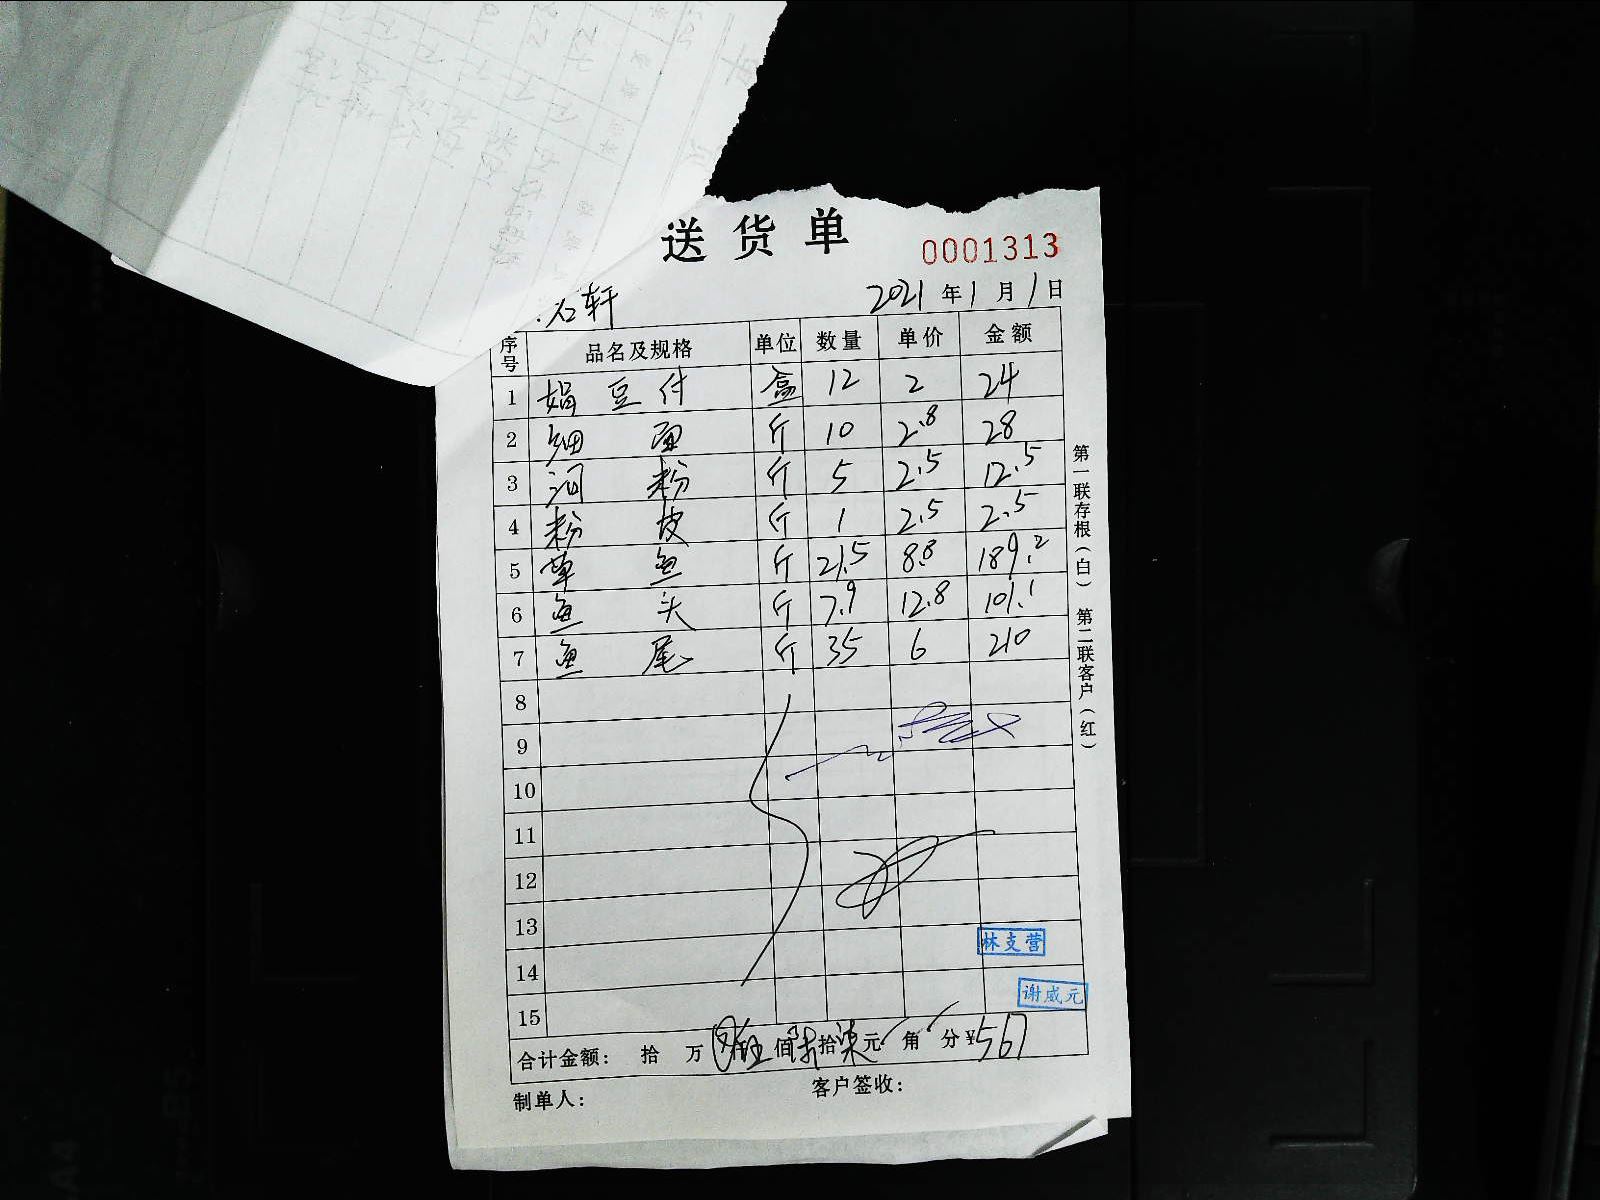 送货单
0001313
石轩
2021年1月1日
序号 品名及规格 单位 数量 单价 金额
1 娟豆付 盒 12 2 24
2 细面 斤 10 2.8 28
3 河粉 斤 5 2.5 12.5
4 粉皮 斤 1 2.5 2.5
5 草鱼 斤 21.5 8.8 189.2
6 鱼头 斤 7.9 12.8 101.1
7 鱼尾 斤 35 6 210
8
9
10
11
12
13
14
15
林支营
谢威元
合计金额： 拾 万 伍佰陆拾柒元 角 分 ¥567
制单人：
客户签收：
第一联存根（白） 第二联客户（红）